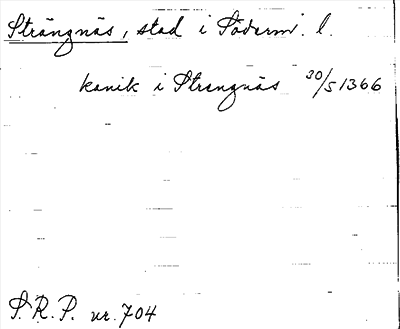 Strängnäs, stad i Söderm. l.
kanik i Strengnäs 30/5 1366
S.R.P. nr. 704